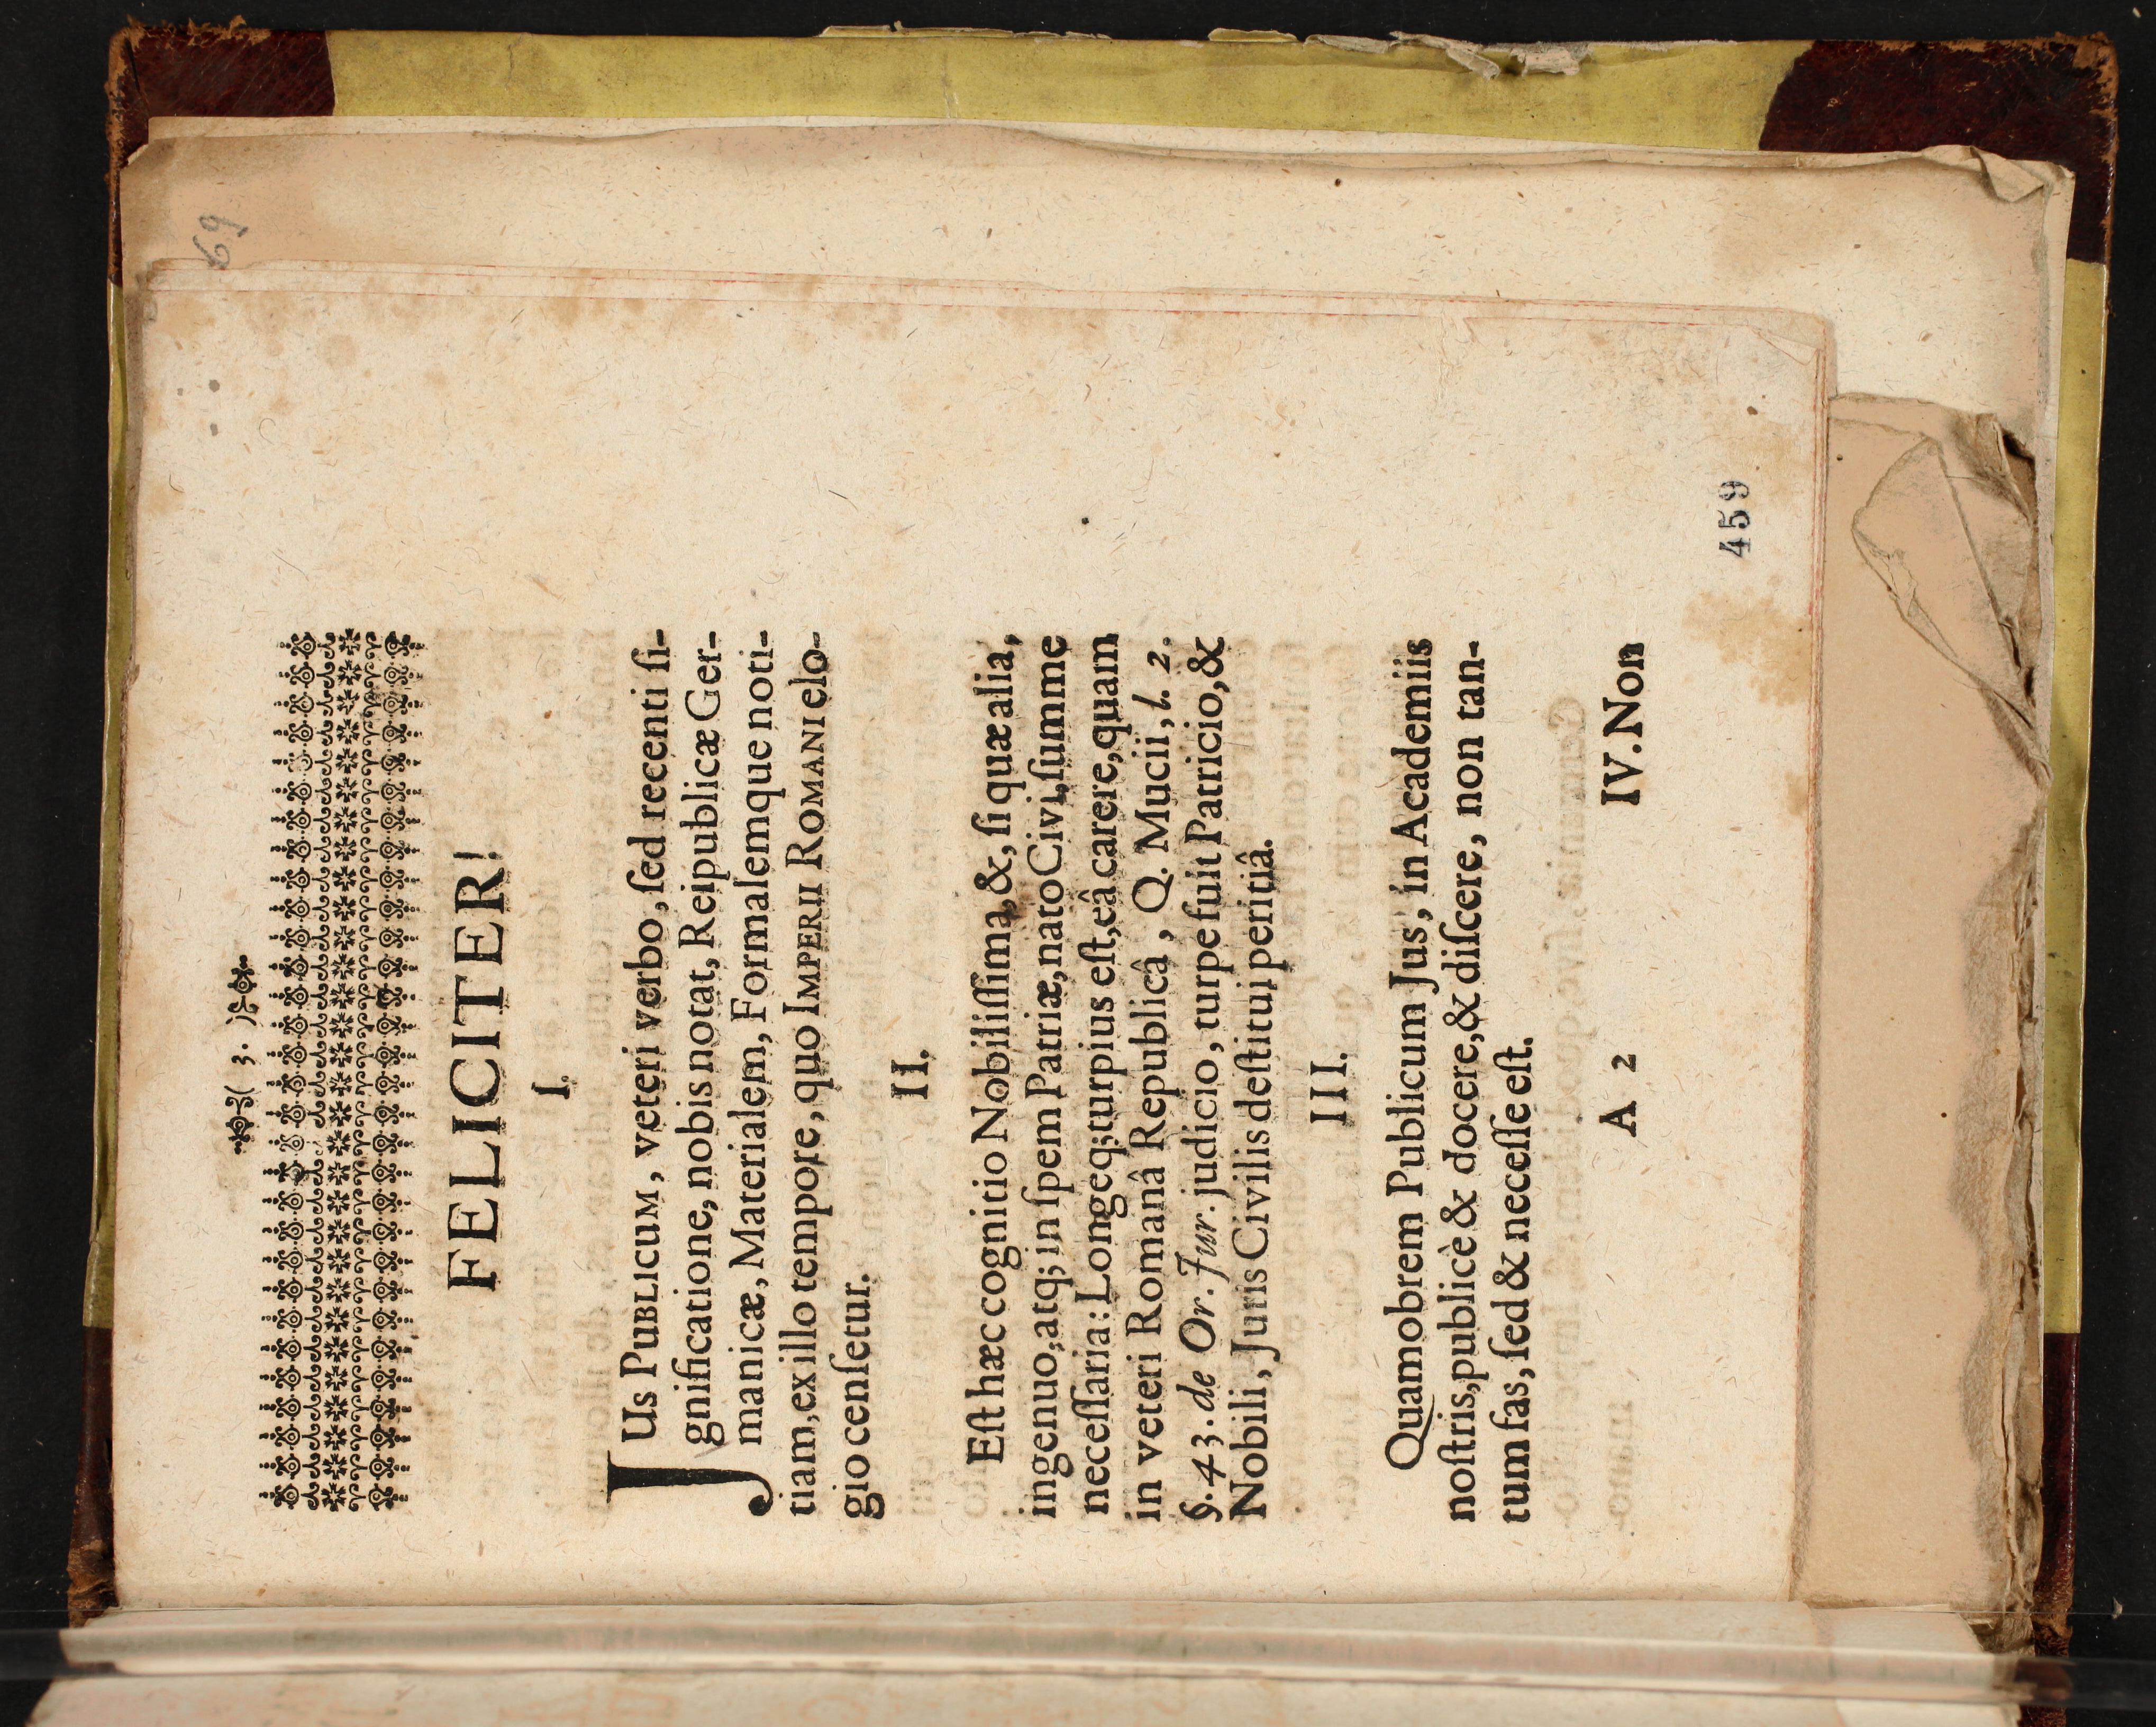 69
)( 3. )(
FELICITER!
I.
JUs PUBLICUM, veteri verbo, ſed recenti ſi-
gnificatione, nobis notat, Reipublicæ Ger-
manicæ, Materialem, Formalemque noti-
tiam, ex illo tempore, quo IMPERII ROMANI elo-
gio cenſetur.
II.
Eſt hæc cognitio Nobiliſſima, &, ſi quæ alia,
ingenuo, atq; in ſpem Patriæ, nato Civi, ſumme
neceſſaria: Longeq; turpius eſt, eâ carere, quam
in veteri Romanâ Republicâ, Q. Mucii, l. 2.
§. 43. de Or. Jur. judicio, turpe fuit Patricio, &
Nobili, Juris Civilis deſtitui peritiâ.
III.
Quamobrem Publicum Jus, in Academiis
noſtris, publicè & docere, & diſcere, non tan-
tum fas, ſed & neceſſe eſt.
A 2 IV. Non
459